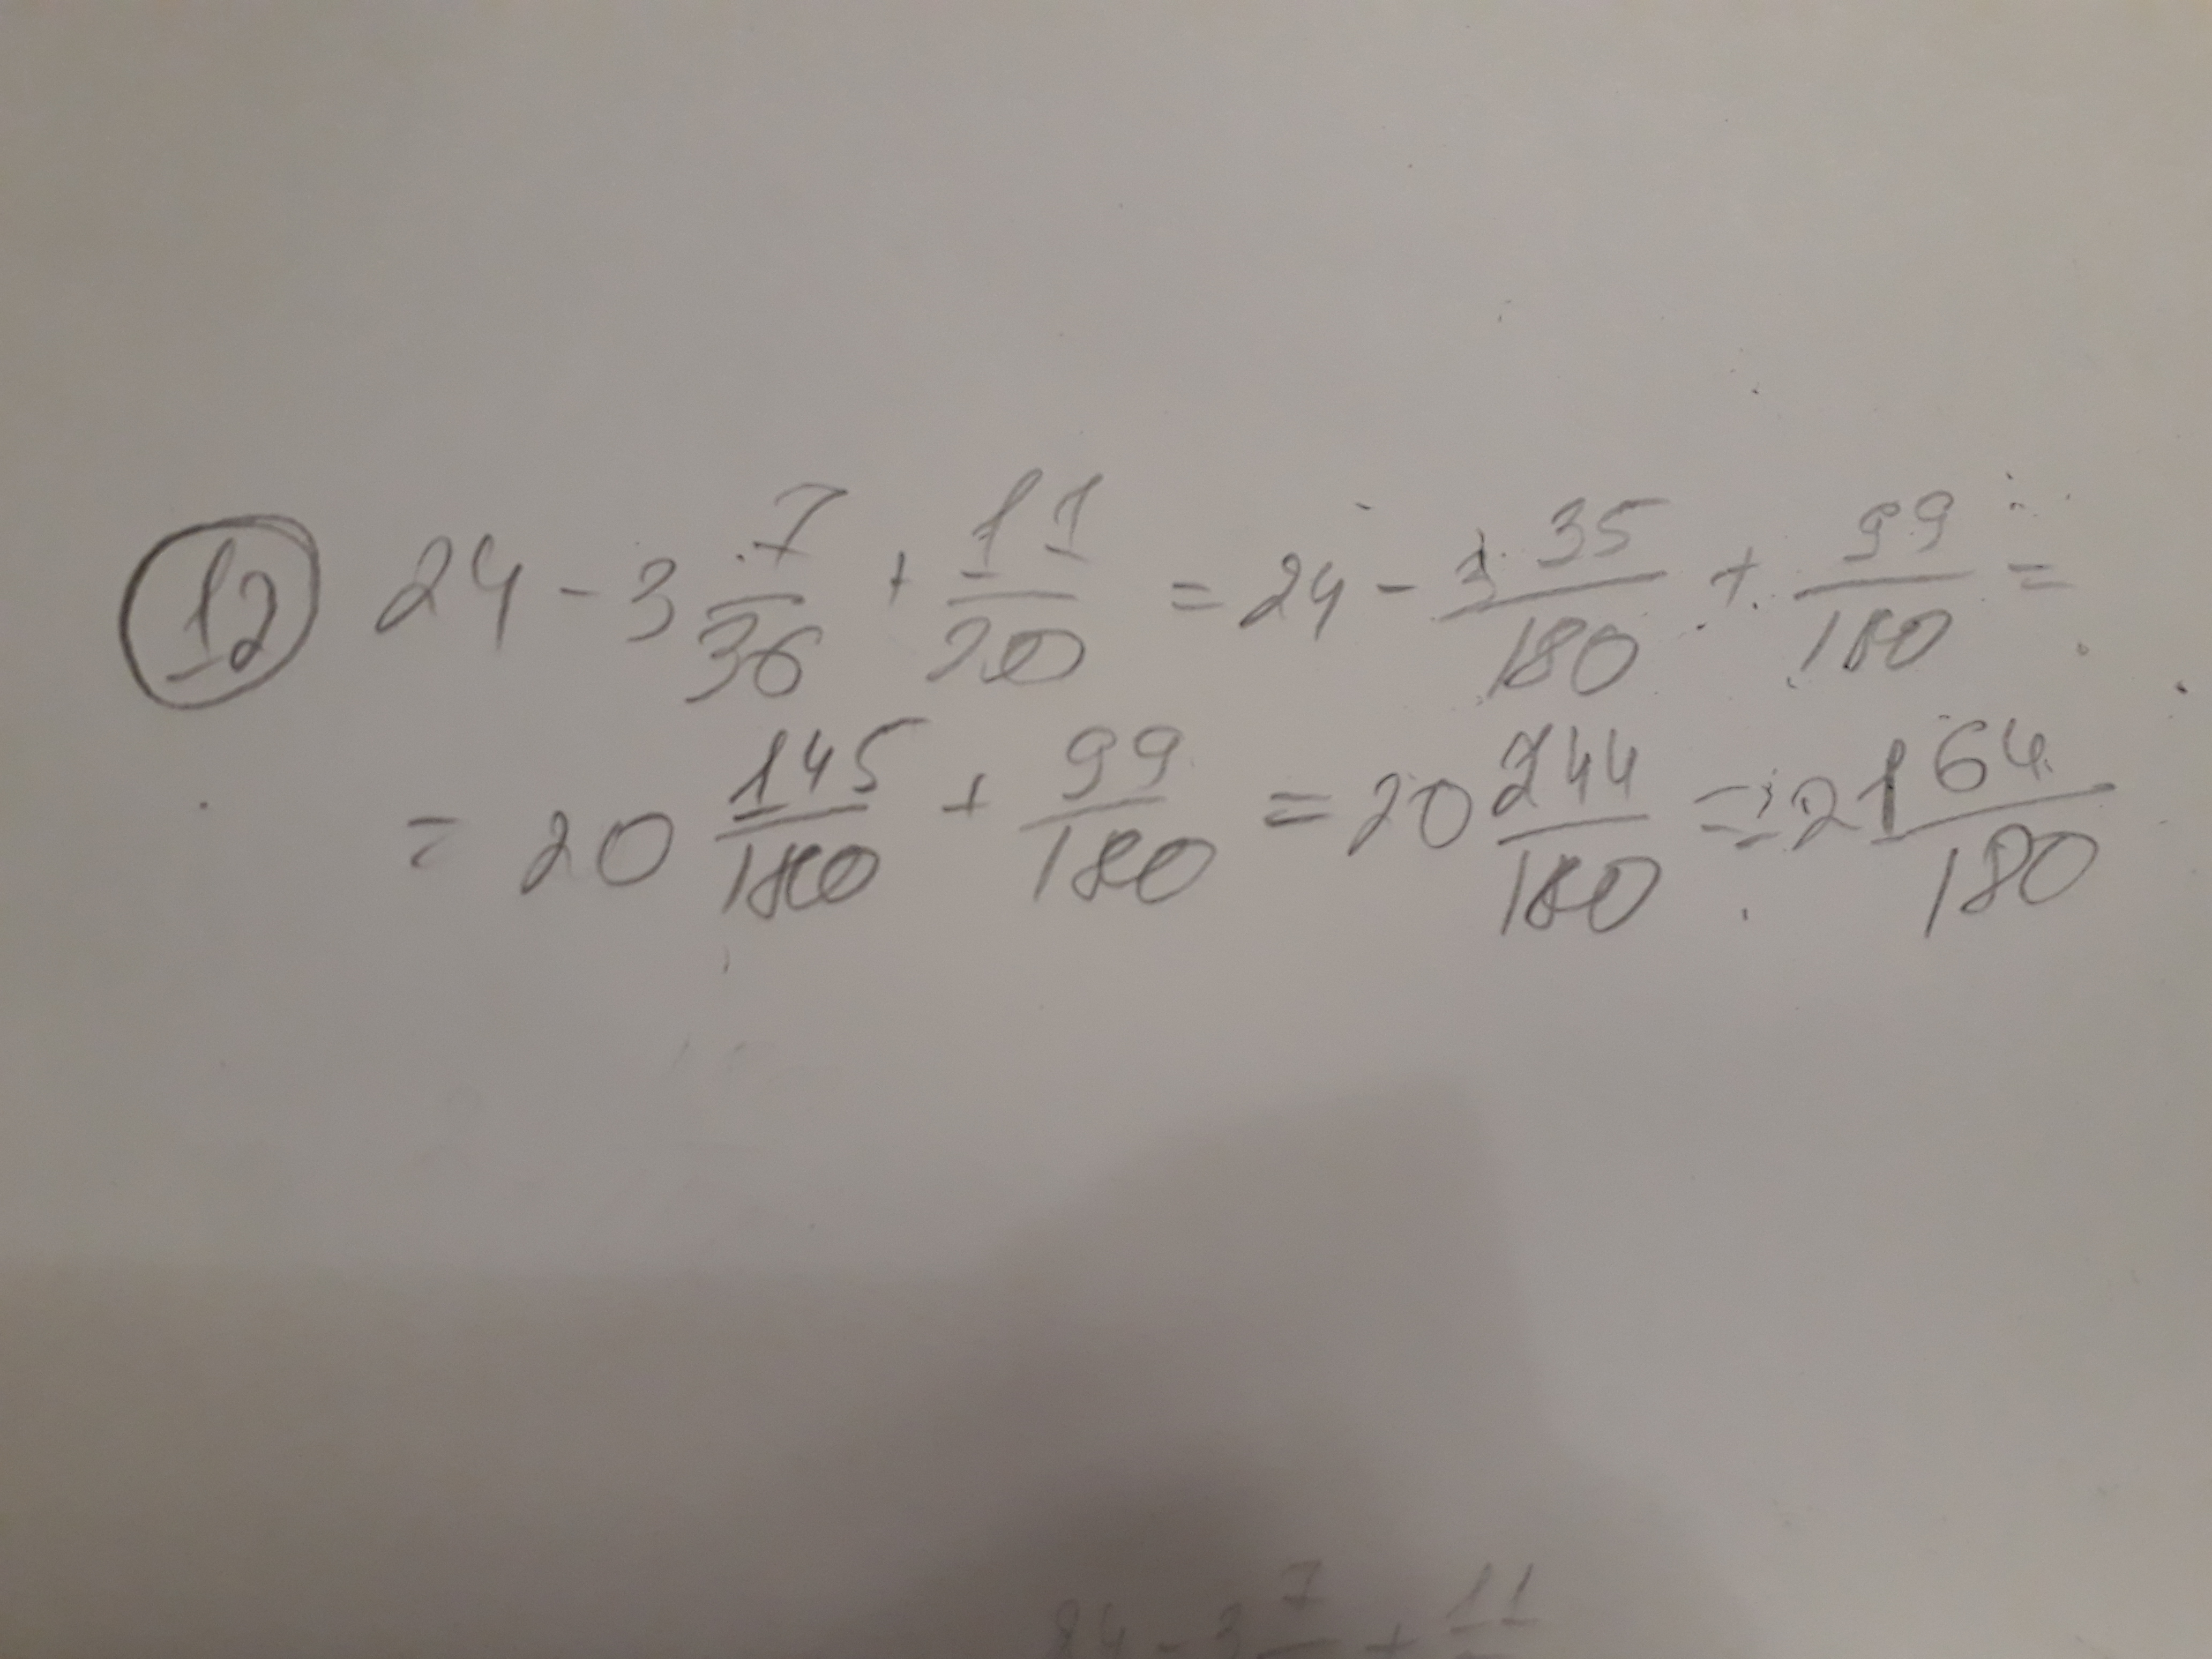 12 24 - 3 7/36 + 11/20 = 24 - 3 35/180 + 99/180 =
= 20 145/180 + 99/180 = 20 244/180 = 21 64/180
24 - 3 7/ + 11/